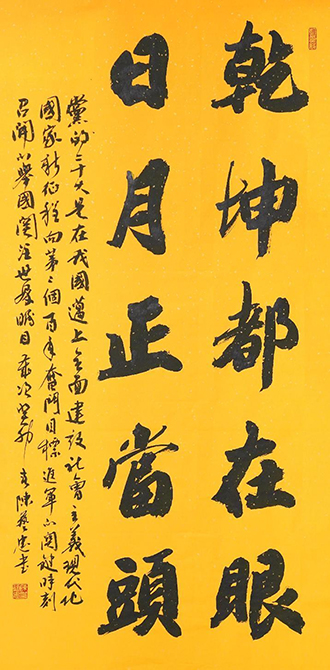 乾坤都在眼
日月正當頭
黨的二十大是在我國邁上全面建設社會主義現代化
國家新征程向第二個百年奮鬥目標進軍的関鍵時刻
召開的舉國関注世界矚目歲次癸卯春陳慶忠書